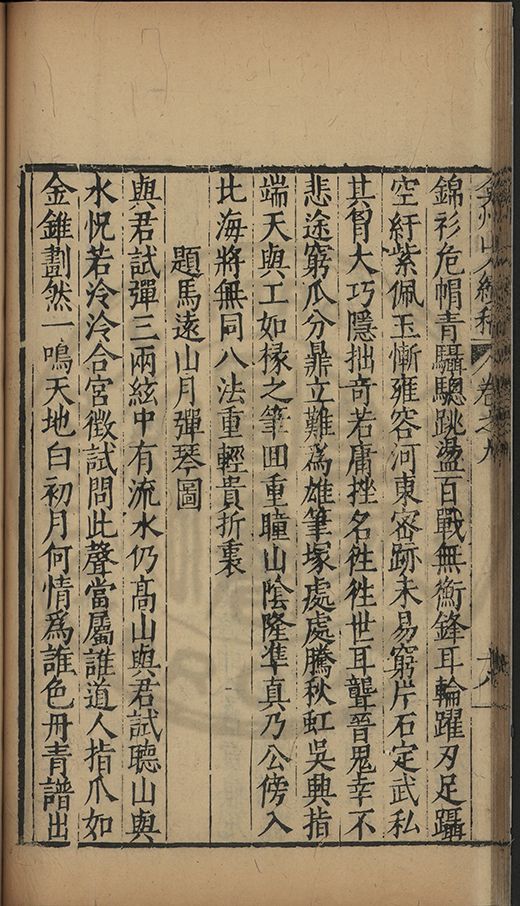 弇州山人續稿 卷之九
錦衫危帽青驄驄跳盪百戰無衡鋒耳輪躍刃足躡
空紆紫佩玉慚雍容河東密跡未易窮片石定武私
其智大巧隱拙奇若庸挫名徃徃世耳聾晉鬼幸不
悲途窮瓜分鼎立難為雄筆塚處處騰秋虹吳興指
端天與工如椽之筆囬重瞳山陰隆準真乃公傍入
比海將無同八法重輕貴折衷
題馬遠山月彈琴圖
與君試彈三兩絃中有流水仍髙山與君試聽山與
水怳若泠泠合宮徵試問此聲當屬誰道人指爪如
金錐劃然一鳴天地白初月何情為誰色丹青譜出